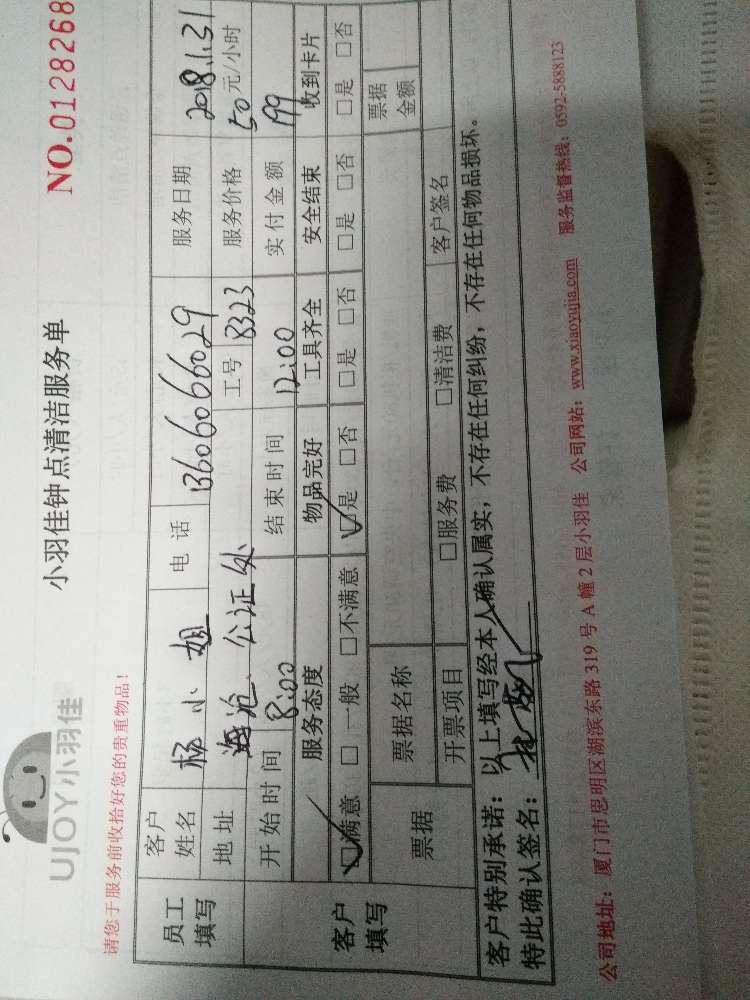 UJOY小羽佳
小羽佳钟点清洁服务单
NO.0128268
请您于服务前收拾好您的贵重物品！
员工填写
客户姓名 杨小姐 电话 13606066029 服务日期 2018.1.31
地址 海沧公证处 工号 8323 服务价格 50元/小时
开始时间 8:00 结束时间 12:00 实付金额 199
客户填写
服务态度 物品完好 工具齐全 安全结束 收到卡片
☑满意 □一般 □不满意 ☑是 □否 □是 □否 □是 □否 □是 □否
票据 票据名称 票据金额
开票项目 □服务费 □清洁费 客户签名
客户特别承诺：以上填写经本人确认属实，不存在任何纠纷，不存在任何物品损坏。
特此确认签名：
公司地址：厦门市思明区湖滨东路 319 号 A 幢 2 层小羽佳 公司网站：www.xiaoyujia.com 服务监督热线：0592-5888123